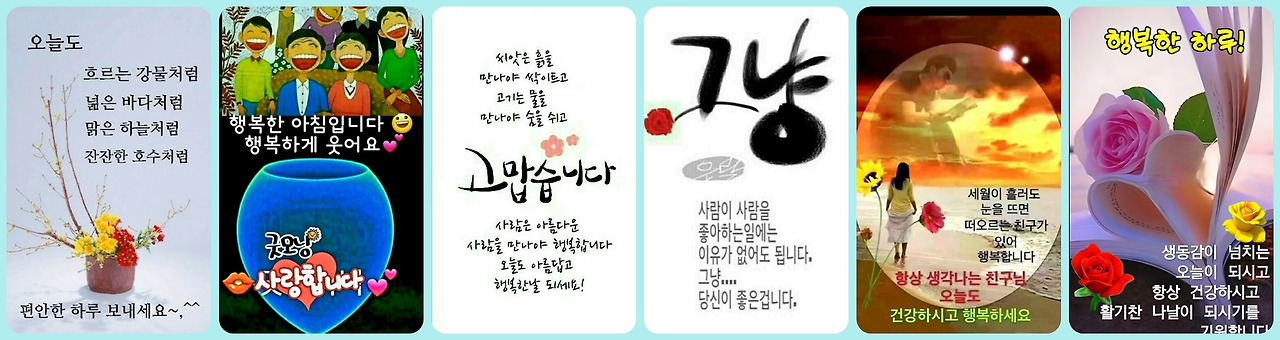 오늘도
흐르는 강물처럼
넓은 바다처럼
맑은 하늘처럼
잔잔한 호수처럼
편안한 하루 보내세요~,^^
행복한 아침입니다
행복하게 웃어요
굿모닝
사랑합니다
씨앗은 흙을
만나야 싹이트고
고기는 물을
만나야 숨을 쉬고
고맙습니다
사람은 아름다운
사람을 만나야 행복합니다
오늘도 아름답고
행복한날 되세요!
그냥
사람이 사람을
좋아하는일에는
이유가 없어도 됩니다.
그냥....
당신이 좋은겁니다.
세월이 흘러도
눈을 뜨면
떠오르는 친구가
있어
행복합니다
항상 생각나는 친구님
오늘도
건강하시고 행복하세요
행복한 하루!
생동감이 넘치는
오늘이 되시고
항상 건강하시고
활기찬 나날이 되시기를
기원합니다